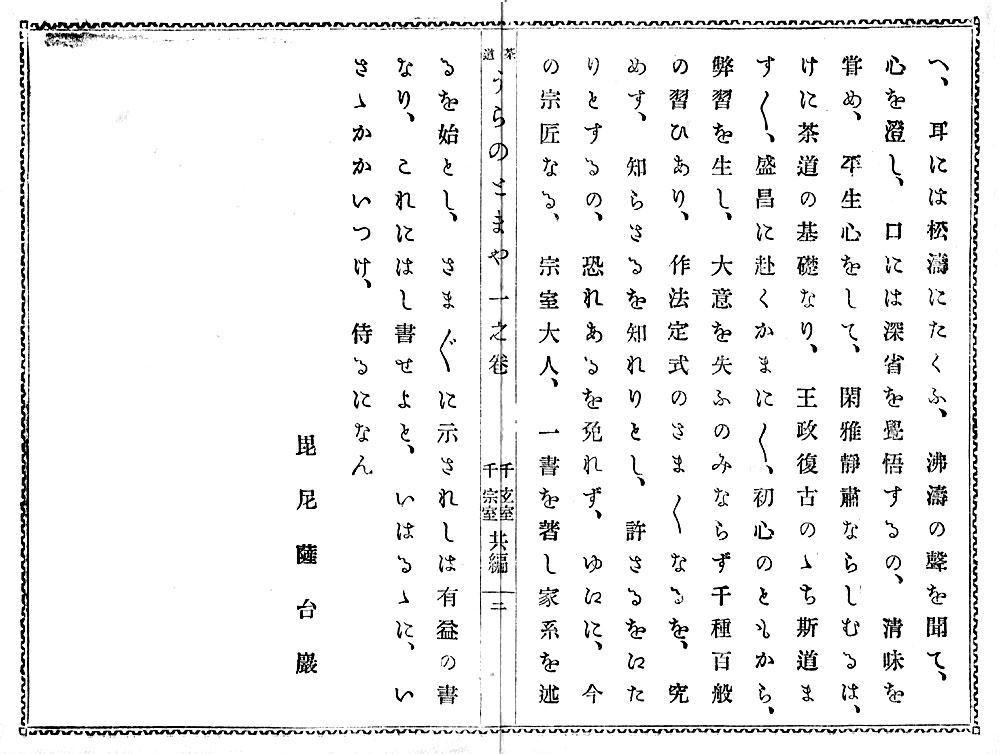 へ、耳には松濤にたくふ、沸濤の聲を聞て、
心を澄し、口には深省を覺悟するの、清味を
甞め、平生心をして、閑雅靜肅ならしむるは、
けに茶道の基礎なり、王政復古のゝち斯道ま
す〱、盛昌に赴くかまに〱、初心のともから、
弊習を生し、大意を失ふのみならず千種百般
の習ひあり、作法定式のさま〱なるを、究
めす、知らさるを知れりとし、許さるをゆた
りとするの、恐れあるを免れず、ゆゆに、今
の宗匠なる、宗室大人、一書を著し家系を述
茶道 うらのとまや 一之卷 千玄室 千宗室 共編 二
るを始とし、さま〲に示されしは有益の書
なり、これにはし書せよと、いはるゝに、い
さゝかかいつけ、侍るになん
毘尼薩台巖